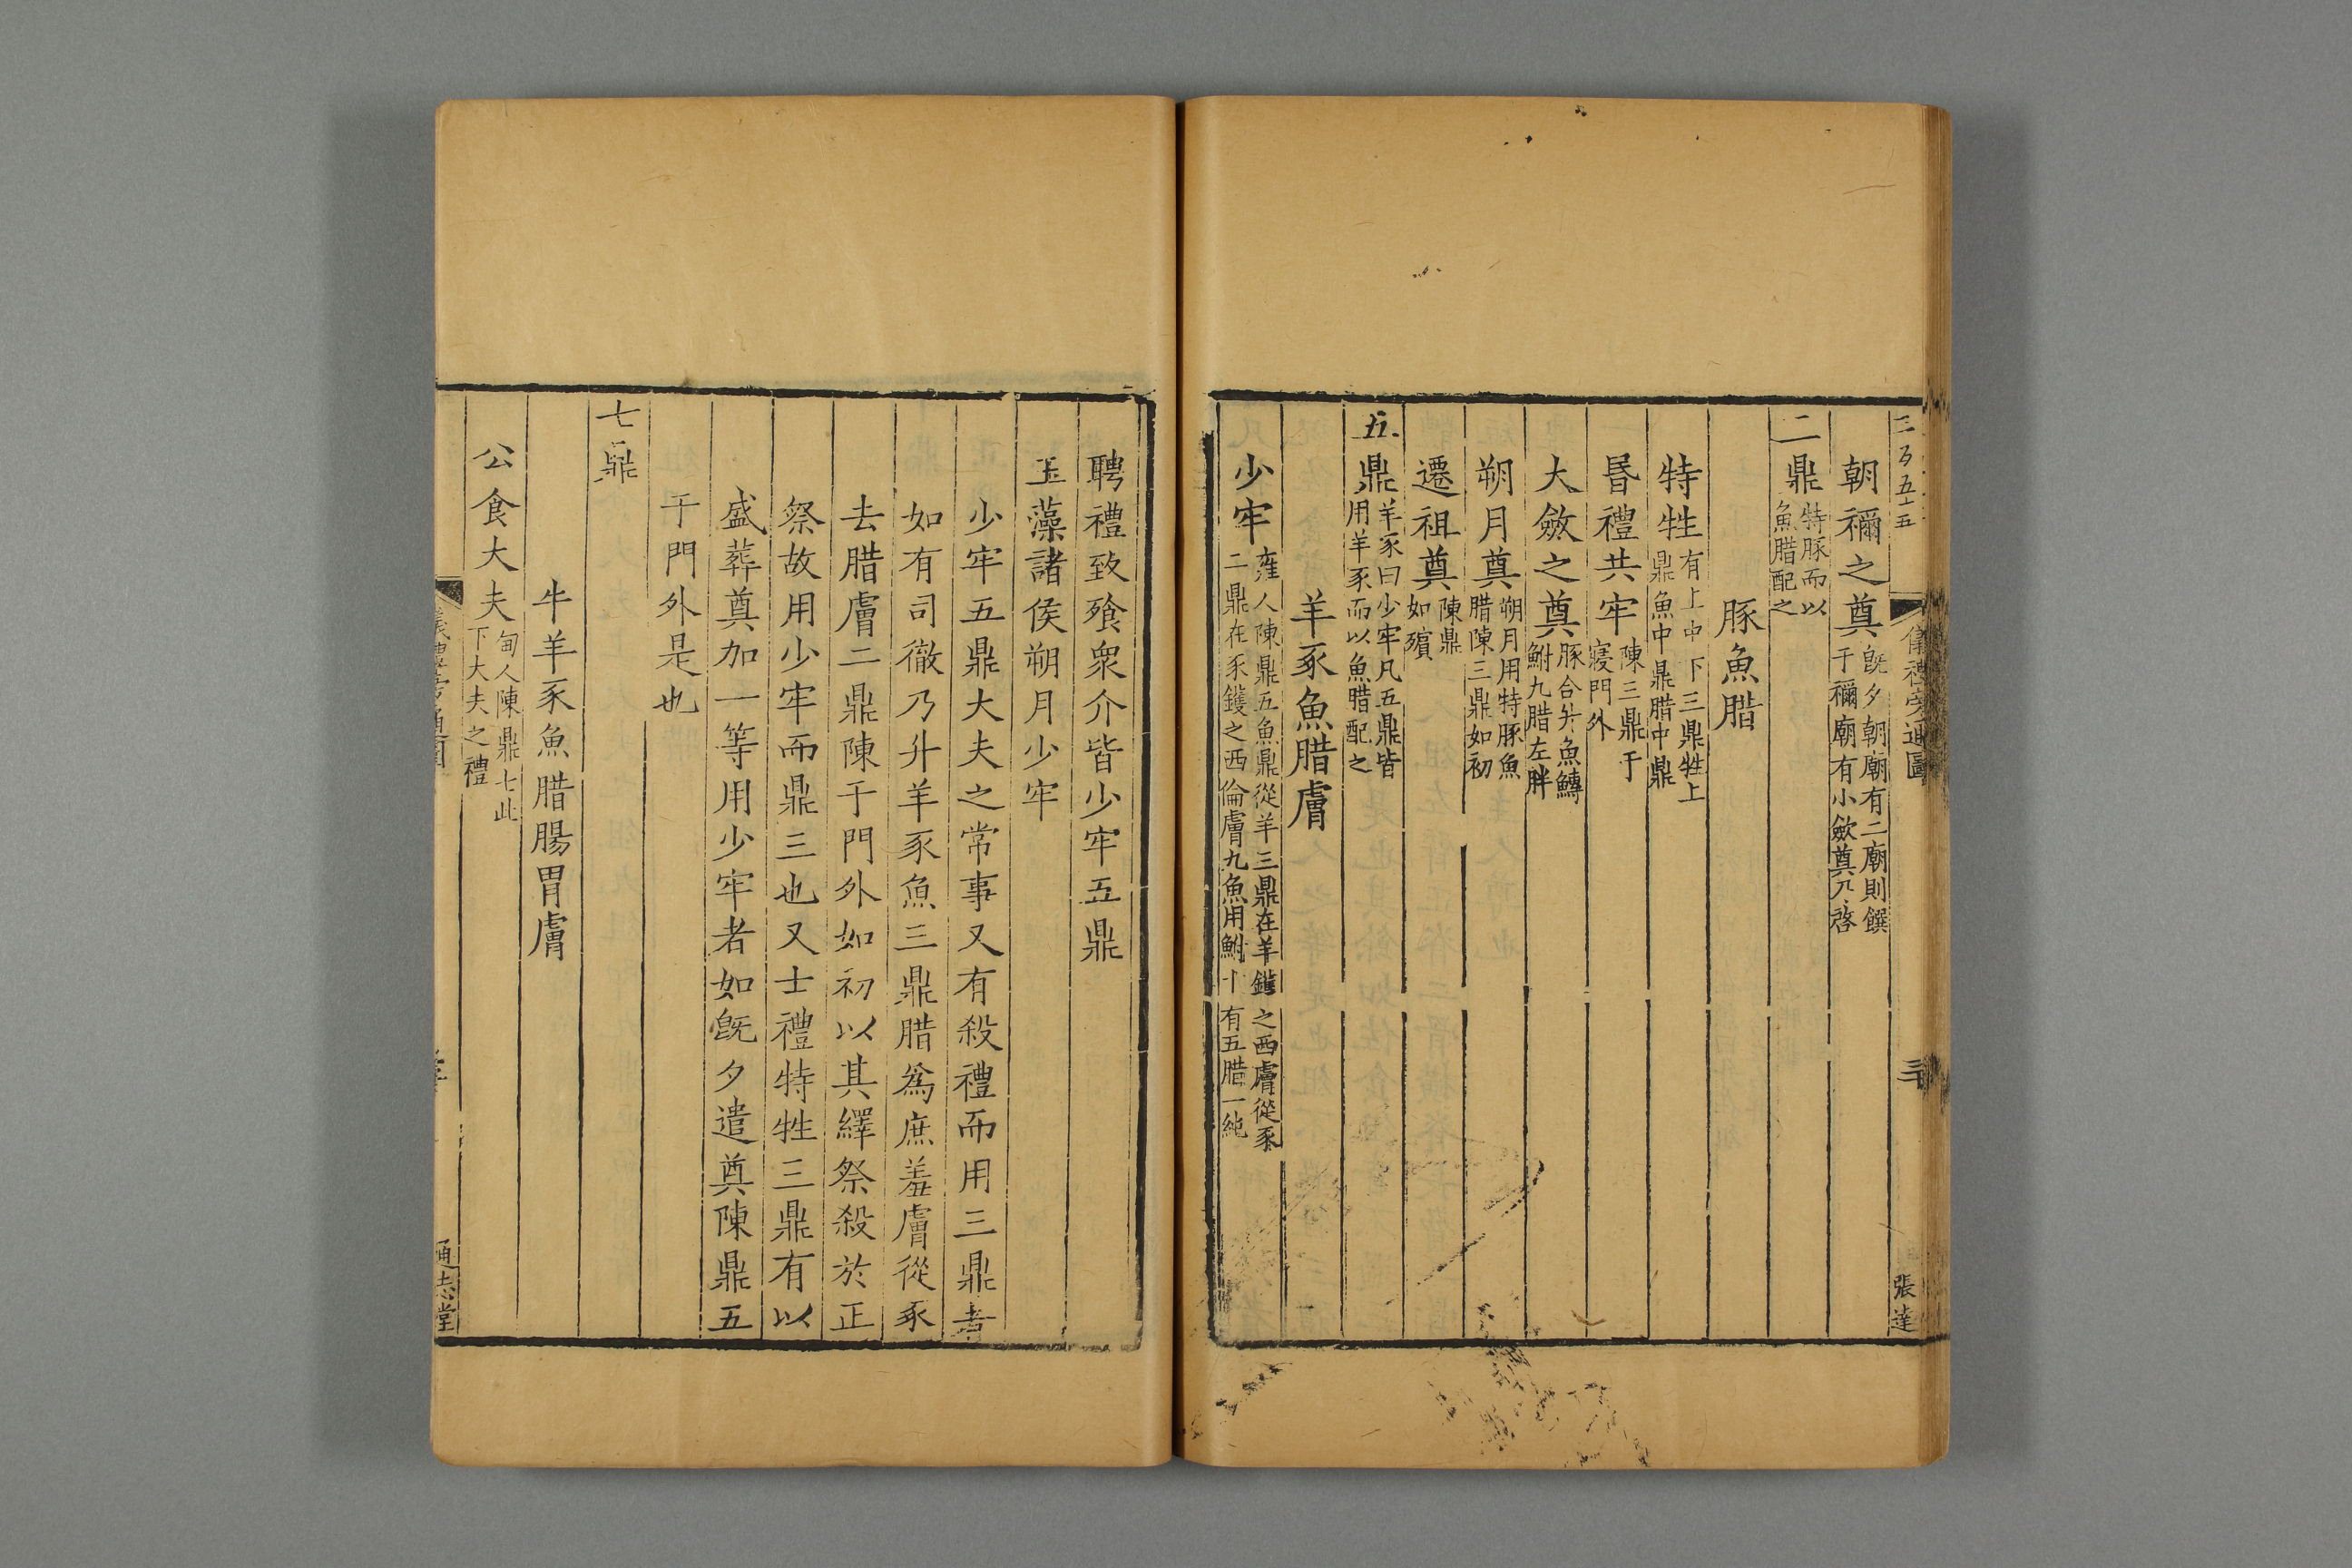 三百五十五 儀禮旁通圖 張達
朝禰之奠旣夕朝廟有二廟則饌
于禰廟有小斂奠乃啓
二鼎特豚而以
魚腊配之
豚魚腊
特牲有上中下三鼎牲上
鼎魚中鼎腊中鼎
昬禮共牢陳三鼎于
寢門外
大斂之奠豚合升魚鱄
鮒九腊左胖
朔月奠朔月用特豚魚
腊陳三鼎如初
遷祖奠陳鼎
如殯
五鼎羊豕曰少牢凡五鼎皆
用羊豕而以魚腊配之
羊豕魚腊膚
少牢雍人陳鼎五魚鼎從羊三鼎在羊鑊之西膚從豕
二鼎在豕鑊之西倫膚九魚用鮒十有五腊一純
聘禮致飱衆介皆少牢五鼎
玉藻諸侯朔月少牢
少牢五鼎大夫之常事又有殺禮而用三鼎者
如有司徹乃升羊豕魚三鼎腊爲庶羞膚從豕
去腊膚二鼎陳于門外如初以其繹祭殺於正
祭故用少牢而鼎三也又士禮特牲三鼎有以
盛葬奠加一等用少牢者如旣夕遣奠陳鼎五
于門外是也
七鼎
牛羊豕魚腊腸胃膚
公食大夫甸人陳鼎七此
下大夫之禮
通志堂